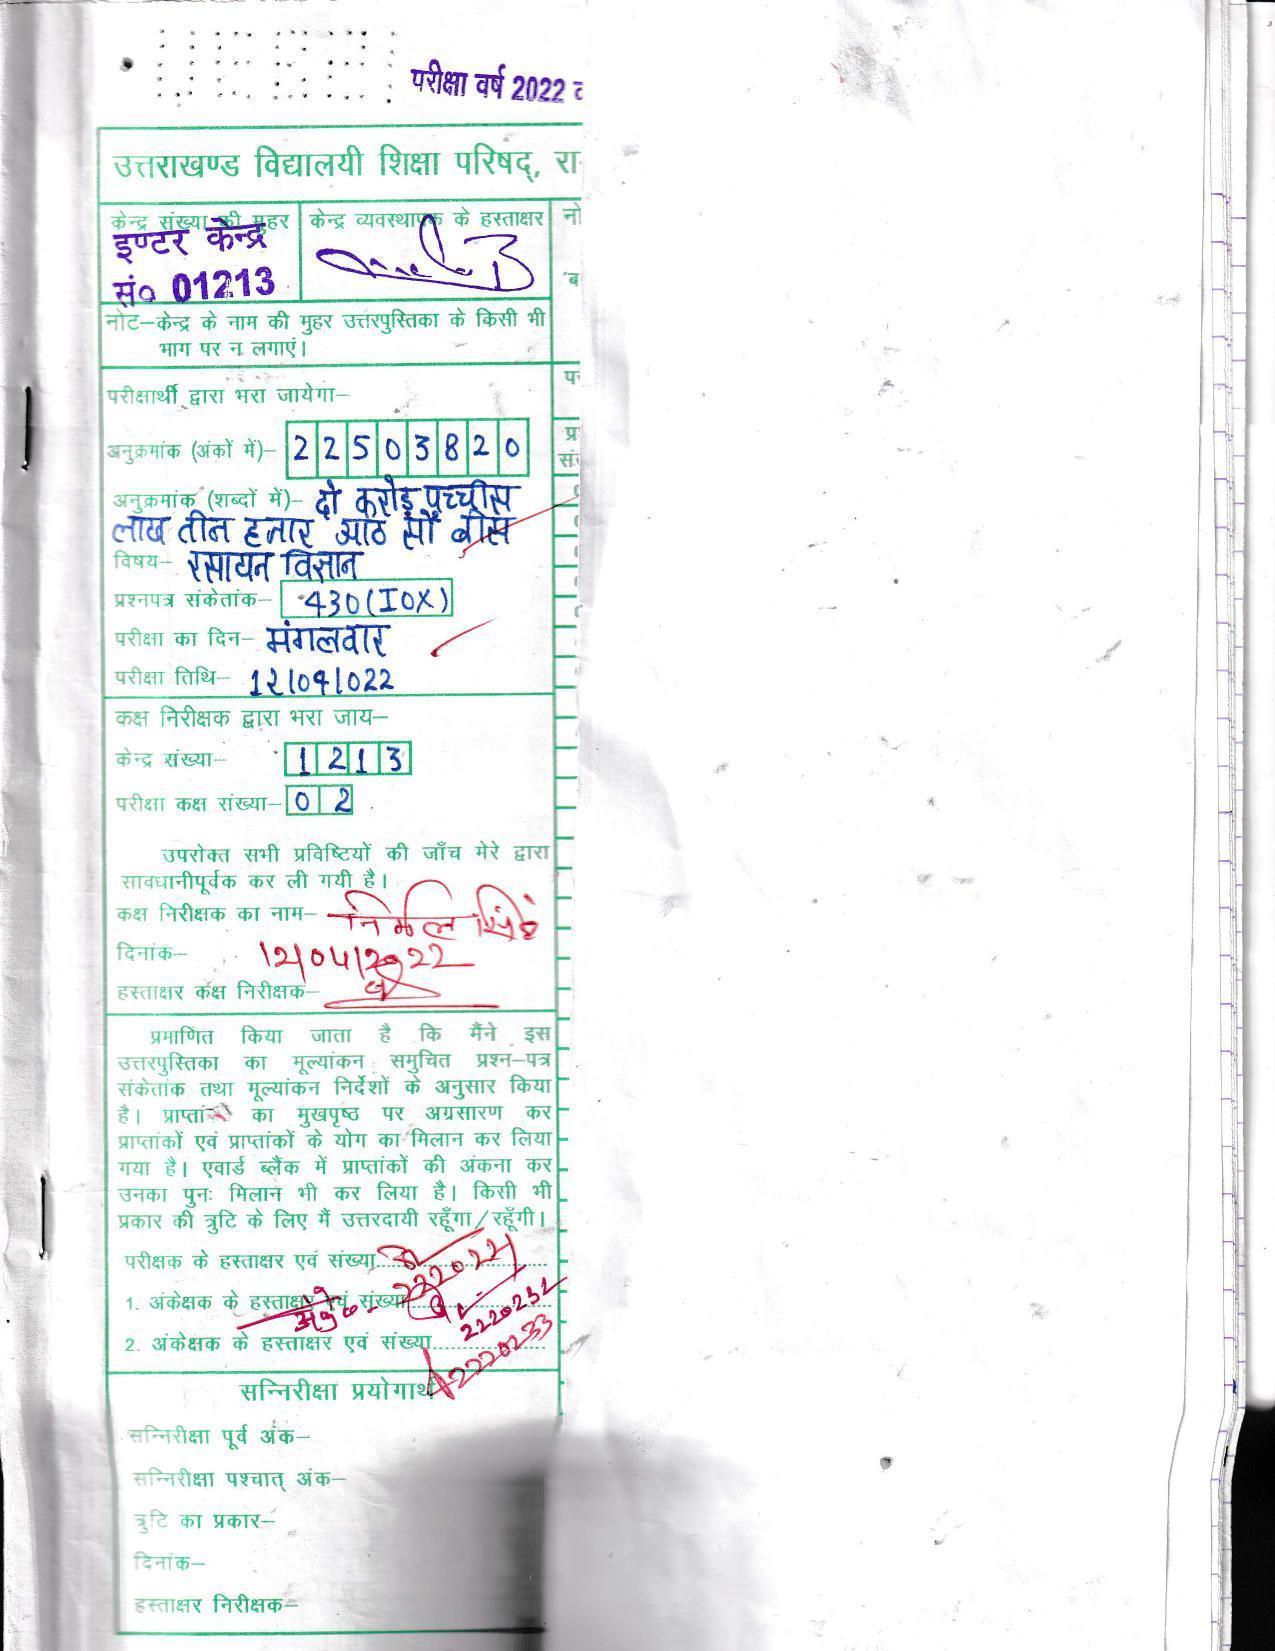 परीक्षा वर्ष 2022
उत्तराखण्ड विद्यालयी शिक्षा परिषद्, रा
केन्द्र संख्या की मुहर
केन्द्र व्यवस्थापक के हस्ताक्षर
नो
इण्टर केन्द्र
सं० 01213
'ब
नोट–केन्द्र के नाम की मुहर उत्तरपुस्तिका के किसी भी
भाग पर न लगाएं।
परीक्षार्थी द्वारा भरा जायेगा–
अनुक्रमांक (अंकों में)– 22503820
प्र
सं
अनुक्रमांक (शब्दों में)– दो करोड़ पच्चीस
लाख तीन हजार आठ सौ बीस
विषय– रसायन विज्ञान
प्रश्नपत्र संकेतांक– 430(IOX)
परीक्षा का दिन– मंगलवार
परीक्षा तिथि– 12/04/022
कक्ष निरीक्षक द्वारा भरा जाय–
केन्द्र संख्या– 1213
परीक्षा कक्ष संख्या– 02
उपरोक्त सभी प्रविष्टियों की जाँच मेरे द्वारा
सावधानीपूर्वक कर ली गयी है।
कक्ष निरीक्षक का नाम– निर्मल सिंह
दिनांक– 12/04/2022
हस्ताक्षर कक्ष निरीक्षक–
प्रमाणित किया जाता है कि मैंने इस
उत्तरपुस्तिका का मूल्यांकन समुचित प्रश्न–पत्र
संकेतांक तथा मूल्यांकन निर्देशों के अनुसार किया
है। का मुखपृष्ठ पर अग्रसारण कर
प्राप्तांकों एवं प्राप्तांकों के योग का मिलान कर लिया
गया है। एवार्ड ब्लैंक में प्राप्तांकों की अंकना कर
उनका पुनः मिलान भी कर लिया है। किसी भी
प्रकार की त्रुटि के लिए मैं उत्तरदायी रहूँगा/रहूँगी।
परीक्षक के हस्ताक्षर एवं संख्या
1. अंकेक्षक के हस्ताक्षर एवं संख्या
2220232
2. अंकेक्षक के हस्ताक्षर एवं संख्या
2220233
सन्निरीक्षा प्रयोगार्थ
सन्निरीक्षा पूर्व अंक–
सन्निरीक्षा पश्चात् अंक–
त्रुटि का प्रकार–
दिनांक–
हस्ताक्षर निरीक्षक–